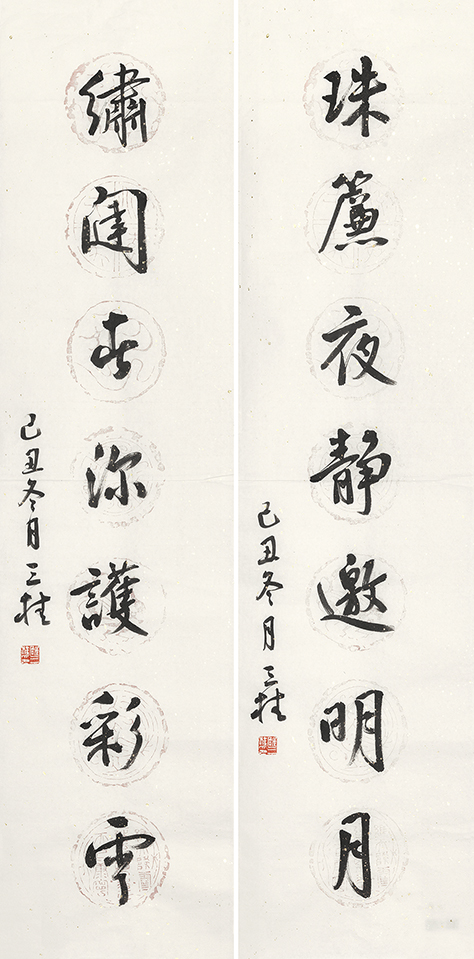 珠簾夜靜邀明月
己丑冬月
繡闥春深護彩雲
己丑冬月